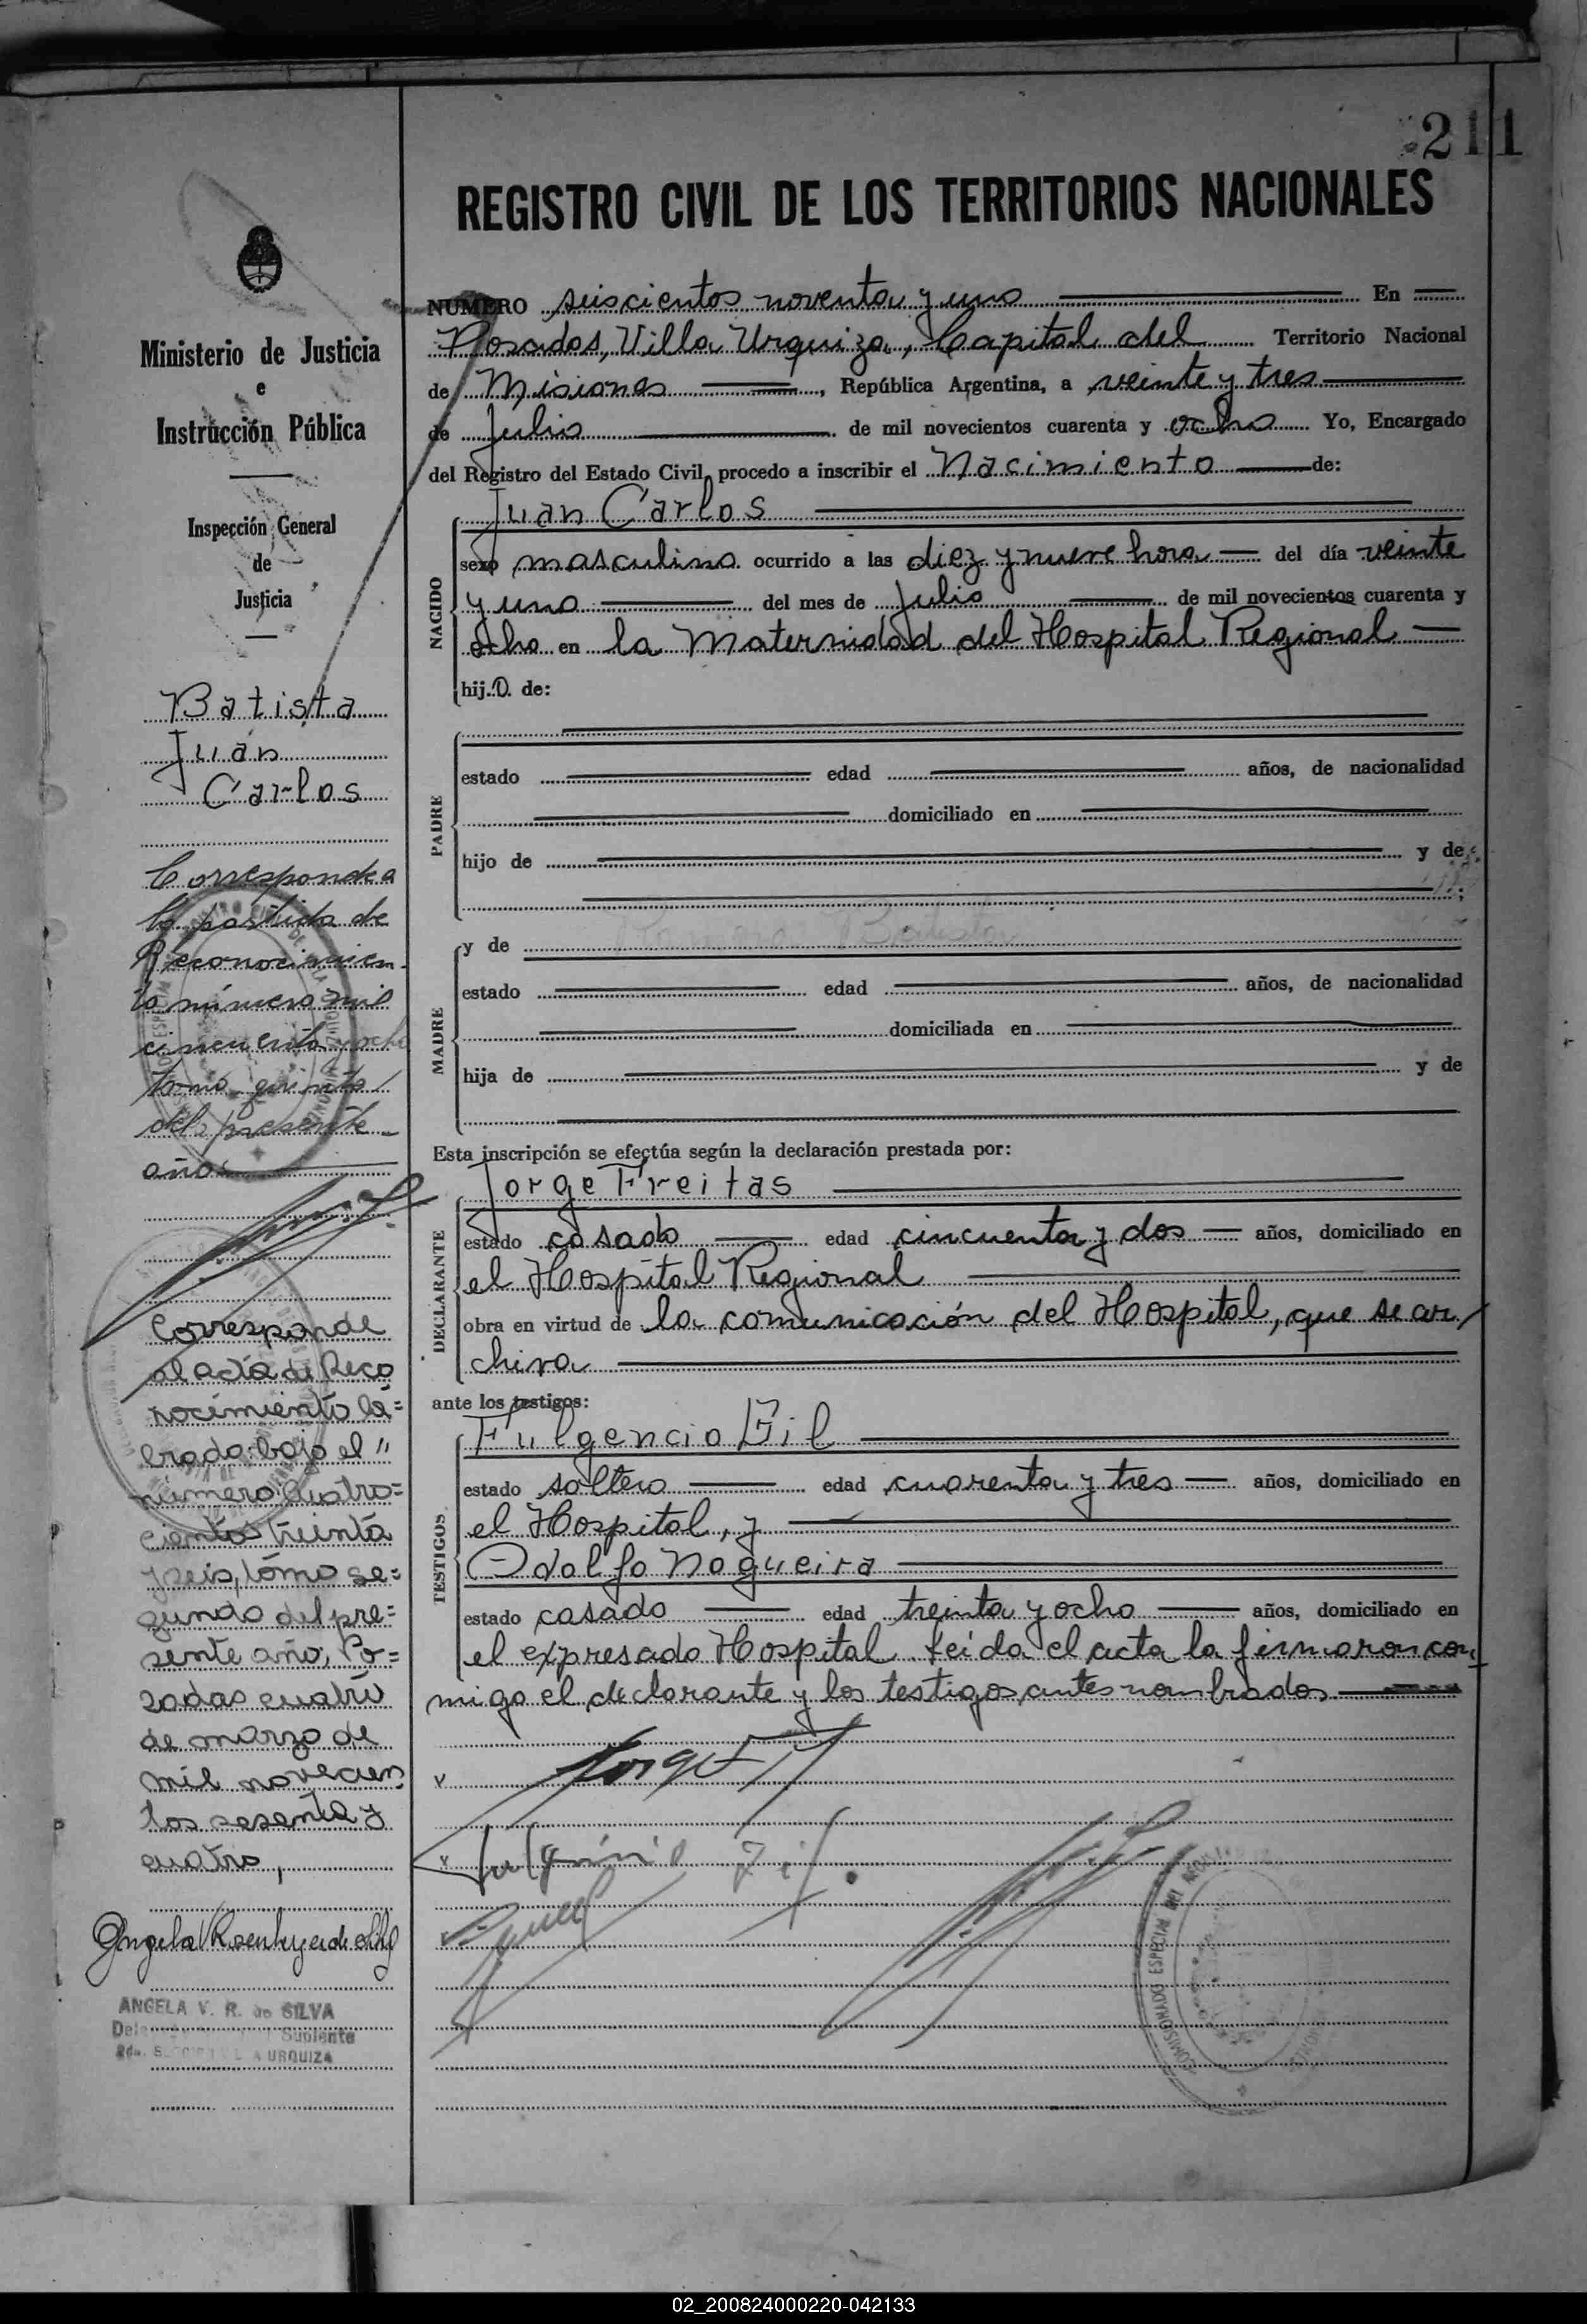 211
REGISTRO CIVIL DE LOS TERRITORIOS NACIONALES
Ministerio de Justicia
e
Instrucción Pública
Inspección General
de
Justicia
Batista
Juan
Carlos
Corresponde a
la partida de
Reconocimien-
to número mil
cincuenta y ocho
tomo quinto
del presente
año
Corresponde
al acta de Reco
nocimiento la=
brada bajo el "
número cuatro=
cientos treinta
y seis, tómo se=
gundo del pre=
sente año, Po=
sadas cuatro
de marzo de
mil novecien
tos sesenta y
cuatro,
ANGELA V. R. de SILVA
Suplente
URQUIZA
NUMERO seiscientos noventa y uno En
Posadas, Villa Urquiza, Capital del Territorio Nacional
de Misiones, República Argentina, a veinte y tres
de Julio de mil novecientos cuarenta y ocho Yo, Encargado
del Registro del Estado Civil, procedo a inscribir el Nacimiento de:
NACIDO
Juan Carlos
sexo masculino ocurrido a las diez y nueve hora del día veinte
y uno del mes de Julio de mil novecientos cuarenta y
ocho en la Maternidad del Hospital Regional
hij.o. de:
PADRE
estado edad años, de nacionalidad
domiciliado en
hijo de y de
;
MADRE
y de
estado edad años, de nacionalidad
domiciliada en
hija de y de
Esta inscripción se efectúa según la declaración prestada por:
DECLARANTE
Jorge Freitas
estado casado edad cincuenta y dos años, domiciliado en
el Hospital Regional
obra en virtud de la comunicación del Hospital, que se ar/
chiva
ante los testigos:
TESTIGOS
Fulgencio Gil
estado soltero edad cuarenta y tres años, domiciliado en
el Hospital, y
Odolfo Nogueira
estado casado edad treinta y ocho años, domiciliado en
el expresado Hospital. Leida el acta la firmaron con
migo el declarante y los testigos antes nombrados
COMISIONADO ESPECIAL DEL
02_200824000220-042133